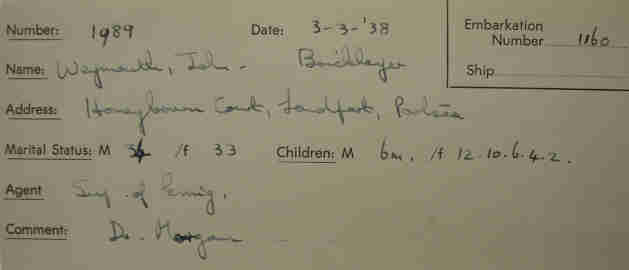 Number: 1989 Date: 3-3-'38
Embarkation Number 1160
Name: Weymouth, John - Bricklayer
Ship
Address: Honeybourn Court, Landport, Portsea
Marital Status: M 36 /f 33 Children: M 6m, /f 12.10.6.4.2.
Agent of
Comment: Dr. Morgan